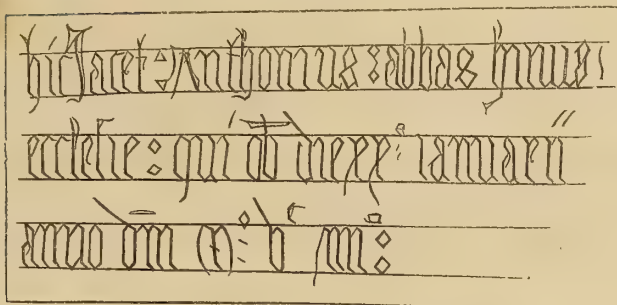 hic Jacet : Anthonius : abbas huius
ecclesie : qui ob die xx : ianuarii
anno dni m :